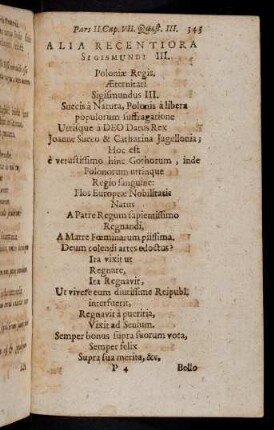 Pars II. Cap. VII. Quæst. III. 343
ALIA RECENTIORA
SIGISMUNDI III.
Poloniæ Regis.
Æternitati
Sigismundus III.
Suecis à Natura, Polonis à libera
populorum suffragatione
Utrisque à DEO Datus Rex
Joanne Sueco & Catharina Jagellonia;
Hoc est
è vetustissimo hinc Gothorum, inde
Polonorum utrinque
Regio sanguine:
Flos Europææ Nobilitatis
Natus
A Patre Regum sapientissimo
Regnandi,
A Matre Fœminarum piissima,
Deum colendi artes edoctus?
Ita vixit ut
Regnare,
Ita Regnavit,
Ut vivere eum diutissime Reipubl.
interfuerit,
Regnavit à pueritia,
Vixit ad Senium.
Semper bonus supra suorum vota,
Semper felix
Supra sua merita, &c.
P 4 Bello